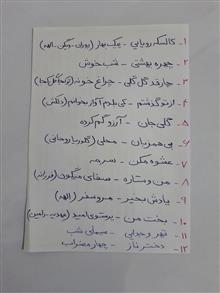 ۱_ کالسکه رویایی - یک بهار (پوران - ویگن - الهه)
۲_ چهره بهشتی - شب خوش
۳_ چارقد گل گلی - چراغ خونه
۴_ از تو گذشتم - کی بدم آواز بخوانم (دلکش)
۵_ گلی جان - آرزو گم کرده
۶_ بی همزبان - محلی (گلوریا روحانی)
۷_ عشوه مکن - سرمه
۸_ من و ستاره - صفای میگون (فرزانه)
۹_ یادش بخیر - مرو سفر (الهه)
۱۰_ بخت من - پرستوی امید
۱۱_ قهر و جدایی - سیمای شب
۱۲_ دختر ناز - چهار مضراب